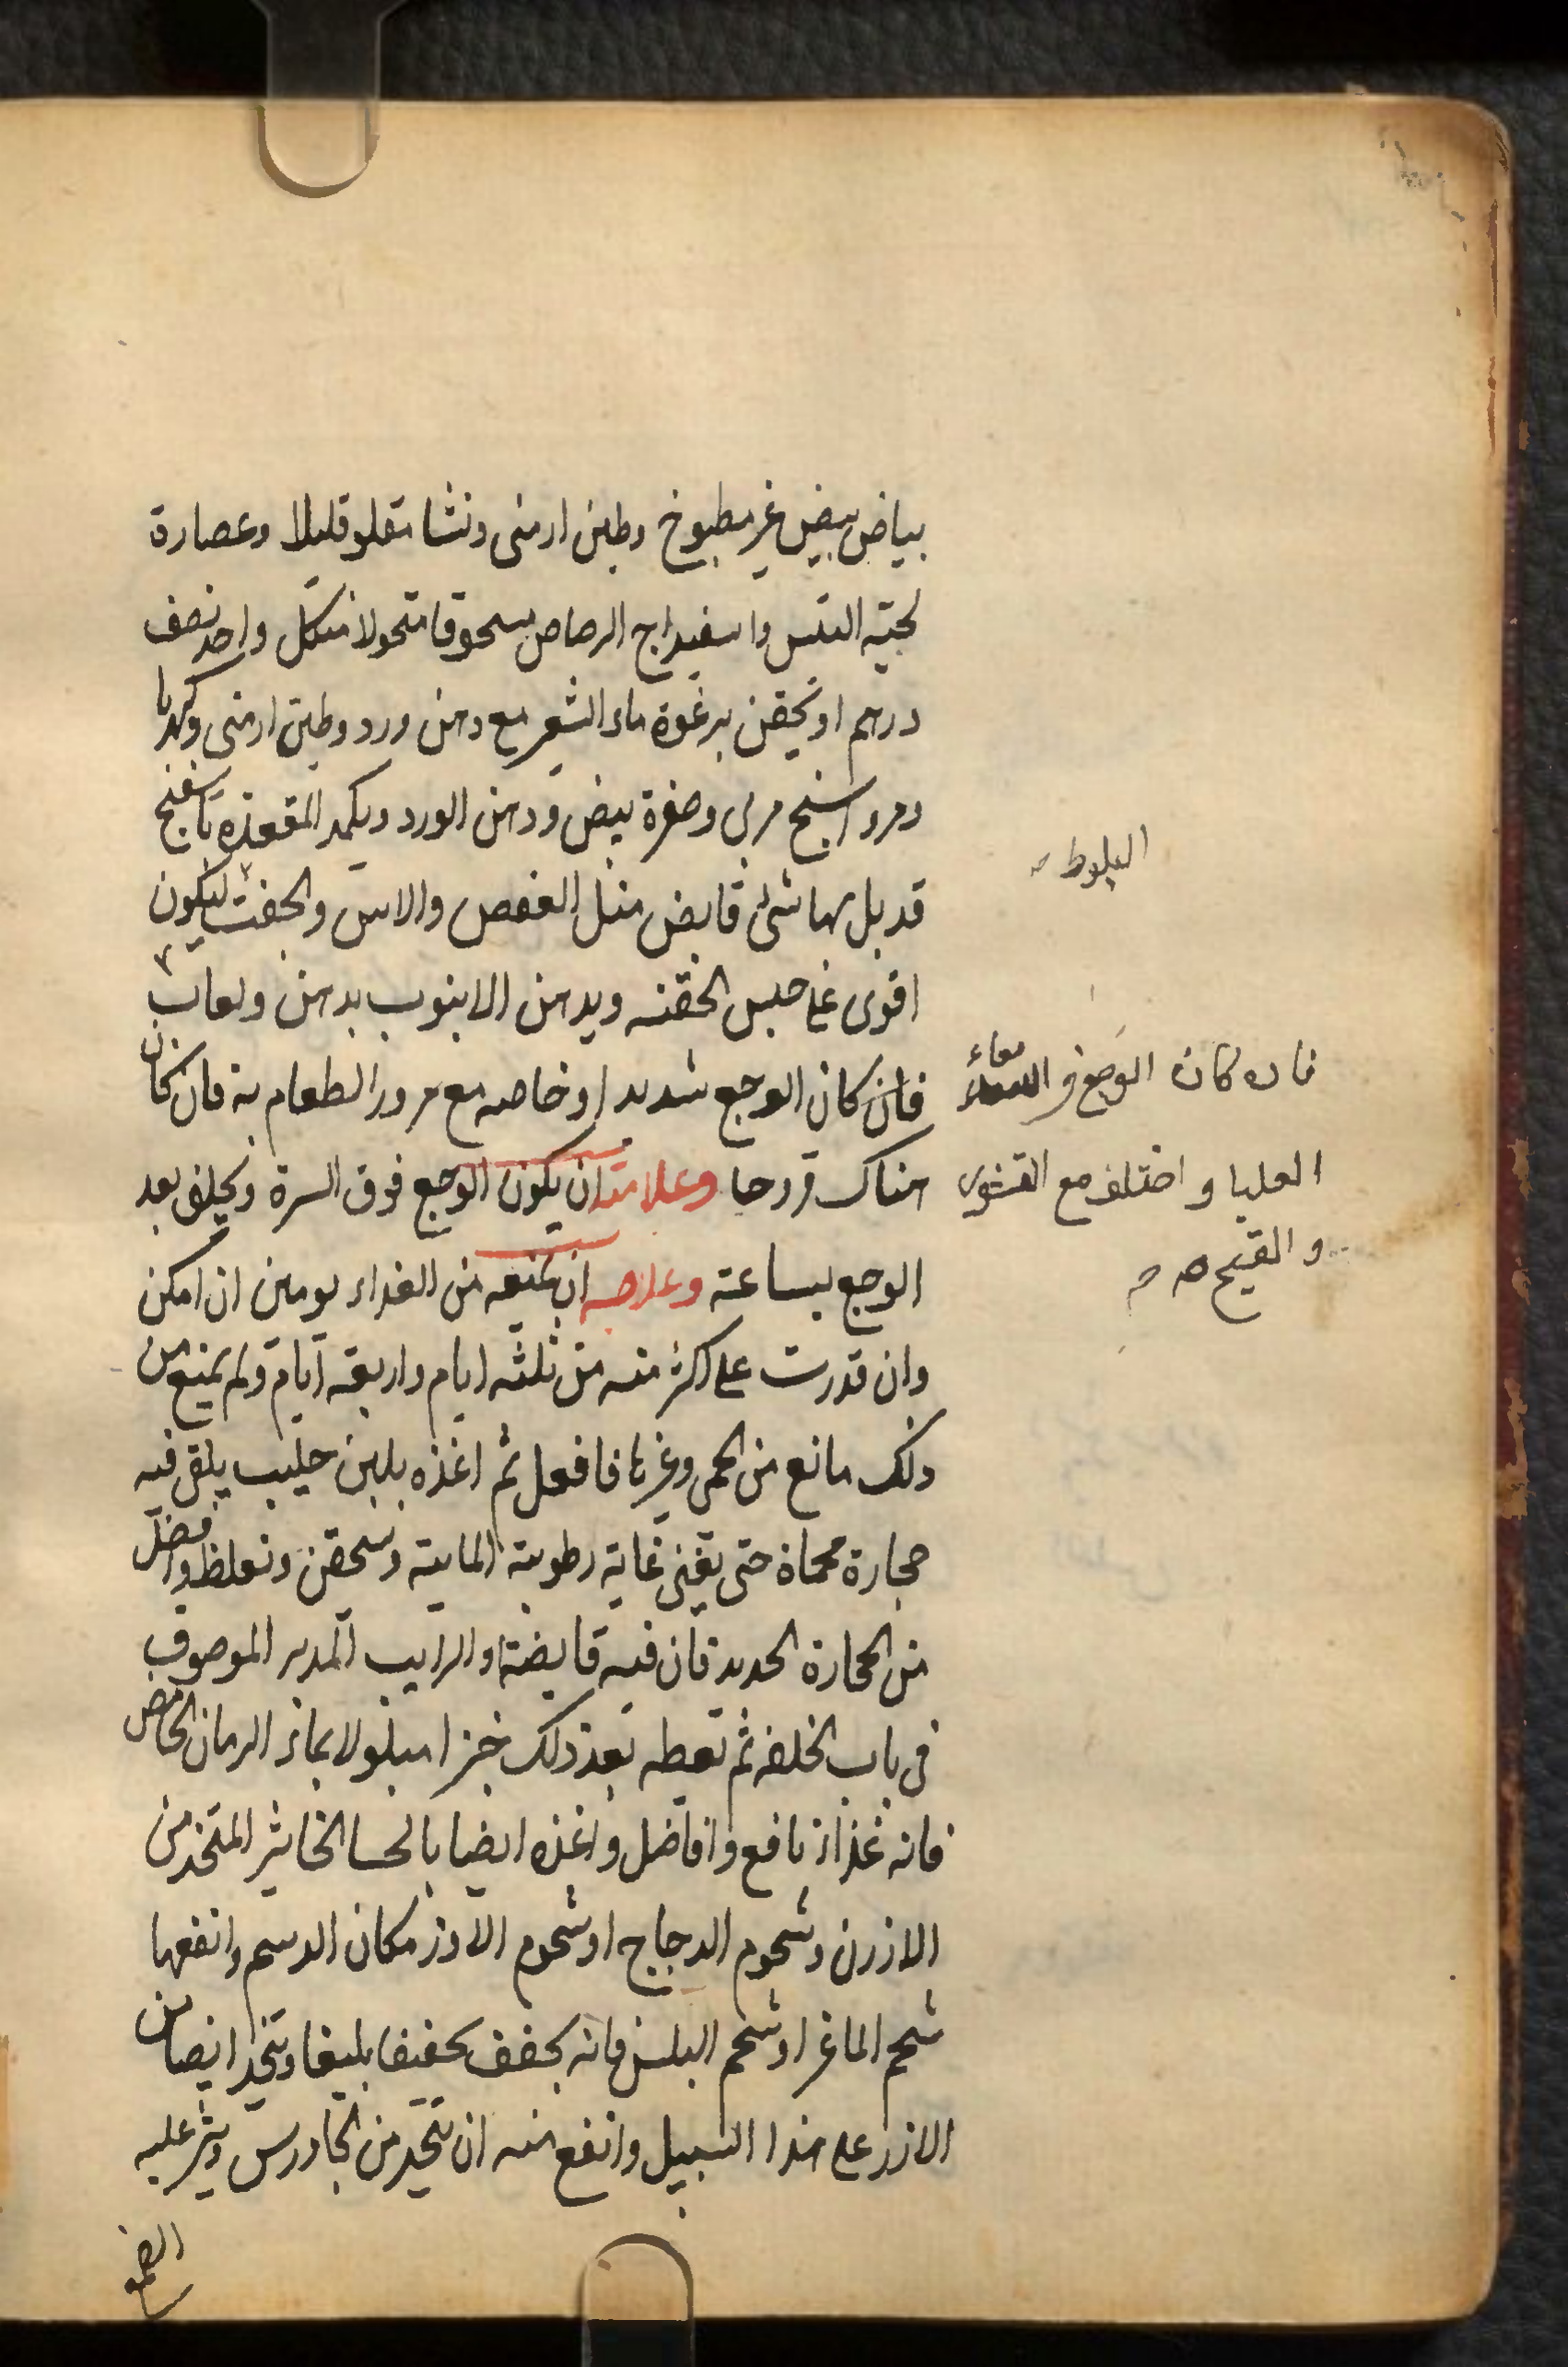 بياض بيض غير مطبوخ وطين ارمنى ونشا مقلو قليلا وعصارة
لحية التيس واسفيداج الرصاص مسحوقا متحولا من كل واحد نصف
درهم او يحقن برغوة ماء الشعير مع دهن ورد وطين ارمنى وكهربا
ومرداسنج مربى وصفرة بيض ودهن الورد ويكمد المقعدة باسفنج
قد بل بها شئ قابض مثل العفص والاس والجفت ليكون
البلوط
اقوى على حبس الحقنه ويدهن الانبوب بدهن ولعاب
فان كان الوجع شديدا وخاصه مع مرور الطعام به فان كان
فان كان الوجع فى معاء
العليا واختلف مع القشور
والقيح صح
هناك قروحا وعلامته ان يكون الوجع فوق السرة ويخلف بعد
الوجع بساعة وعلاجه ان يمنعه من الغذاء يومين ان امكن
وان قدرت على اكثر منه من ثلثه ايام واربعة ايام ولم يمنع من
ذلك مانع من الحمى وغيرها فافعل ثم اغذه بلبن حليب يلقى فيه
حجارة محماة حتى يفنى غاية رطوبته المايية وتسحقن وتغلظ وافضل
من الحجارة الحديد فان فيه قابضة والرايب المدبر الموصوف
فى باب الخلفه ثم تعطه بعد ذلك خبزا مبلولا بماء الرمان الحامض
فانه غذاء نافع وافاضل واغذه ايضا بالحسا الخاثر المتخذ من
الارزن وشحوم الدجاج او شحوم الاوز مكان الدسم وانفعها
شحم الماعز او شحم فانه يجفف تجفيفا بليغا ويتخذ ايضا من
الارز على هذا السبيل وانفع منه ان يتخذ من الجاورس وينثر عليه
الصمغ